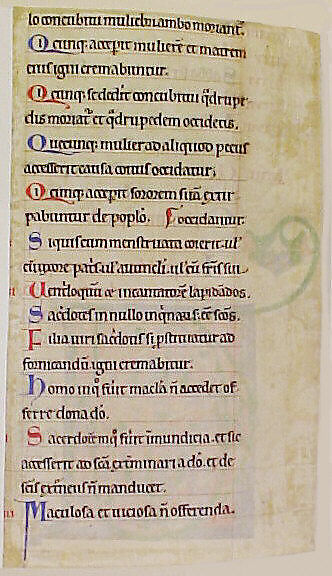 lo concubitu muliebri ambo moriant᷑.
Qⁱcunq; acceperit mulierē et matrem
eius igni cremabuntur.
Qⁱcunq; se dederit concubitui qͣdrupe
dis moriat᷑ et qͣdrupedem occidetis.
Quecunq; mulier ad aliquod pecus
accesserit causa coitus occidatur;
Qⁱcunq; acceperit sororem suā extir
pabuntur de poplō. occidantur.
Siquis cum menstruata coierit. ul᷑
cū uxore patˢ ul᷑ auunculi. ul᷑ cū frīs sui
Uentiloquū ac incantatorē lapidādos.
Sac̄dotes in nullo inqͥnatis. eē scōs.
Filia uiri sac̄dotis si ꝓstituatur ad
fornicandū igni cremabitur.
homo in qͦ fuit macl̄a ñ accedet of
ferre dona dō.
Sacerdotē in qͦ fūit inmundicia. et sic
accesserit ad scā̄ exterminari a dō. et de
scīs ext̄neus ñ manducet.
Maculosa et uiciosa ñ offerenda.